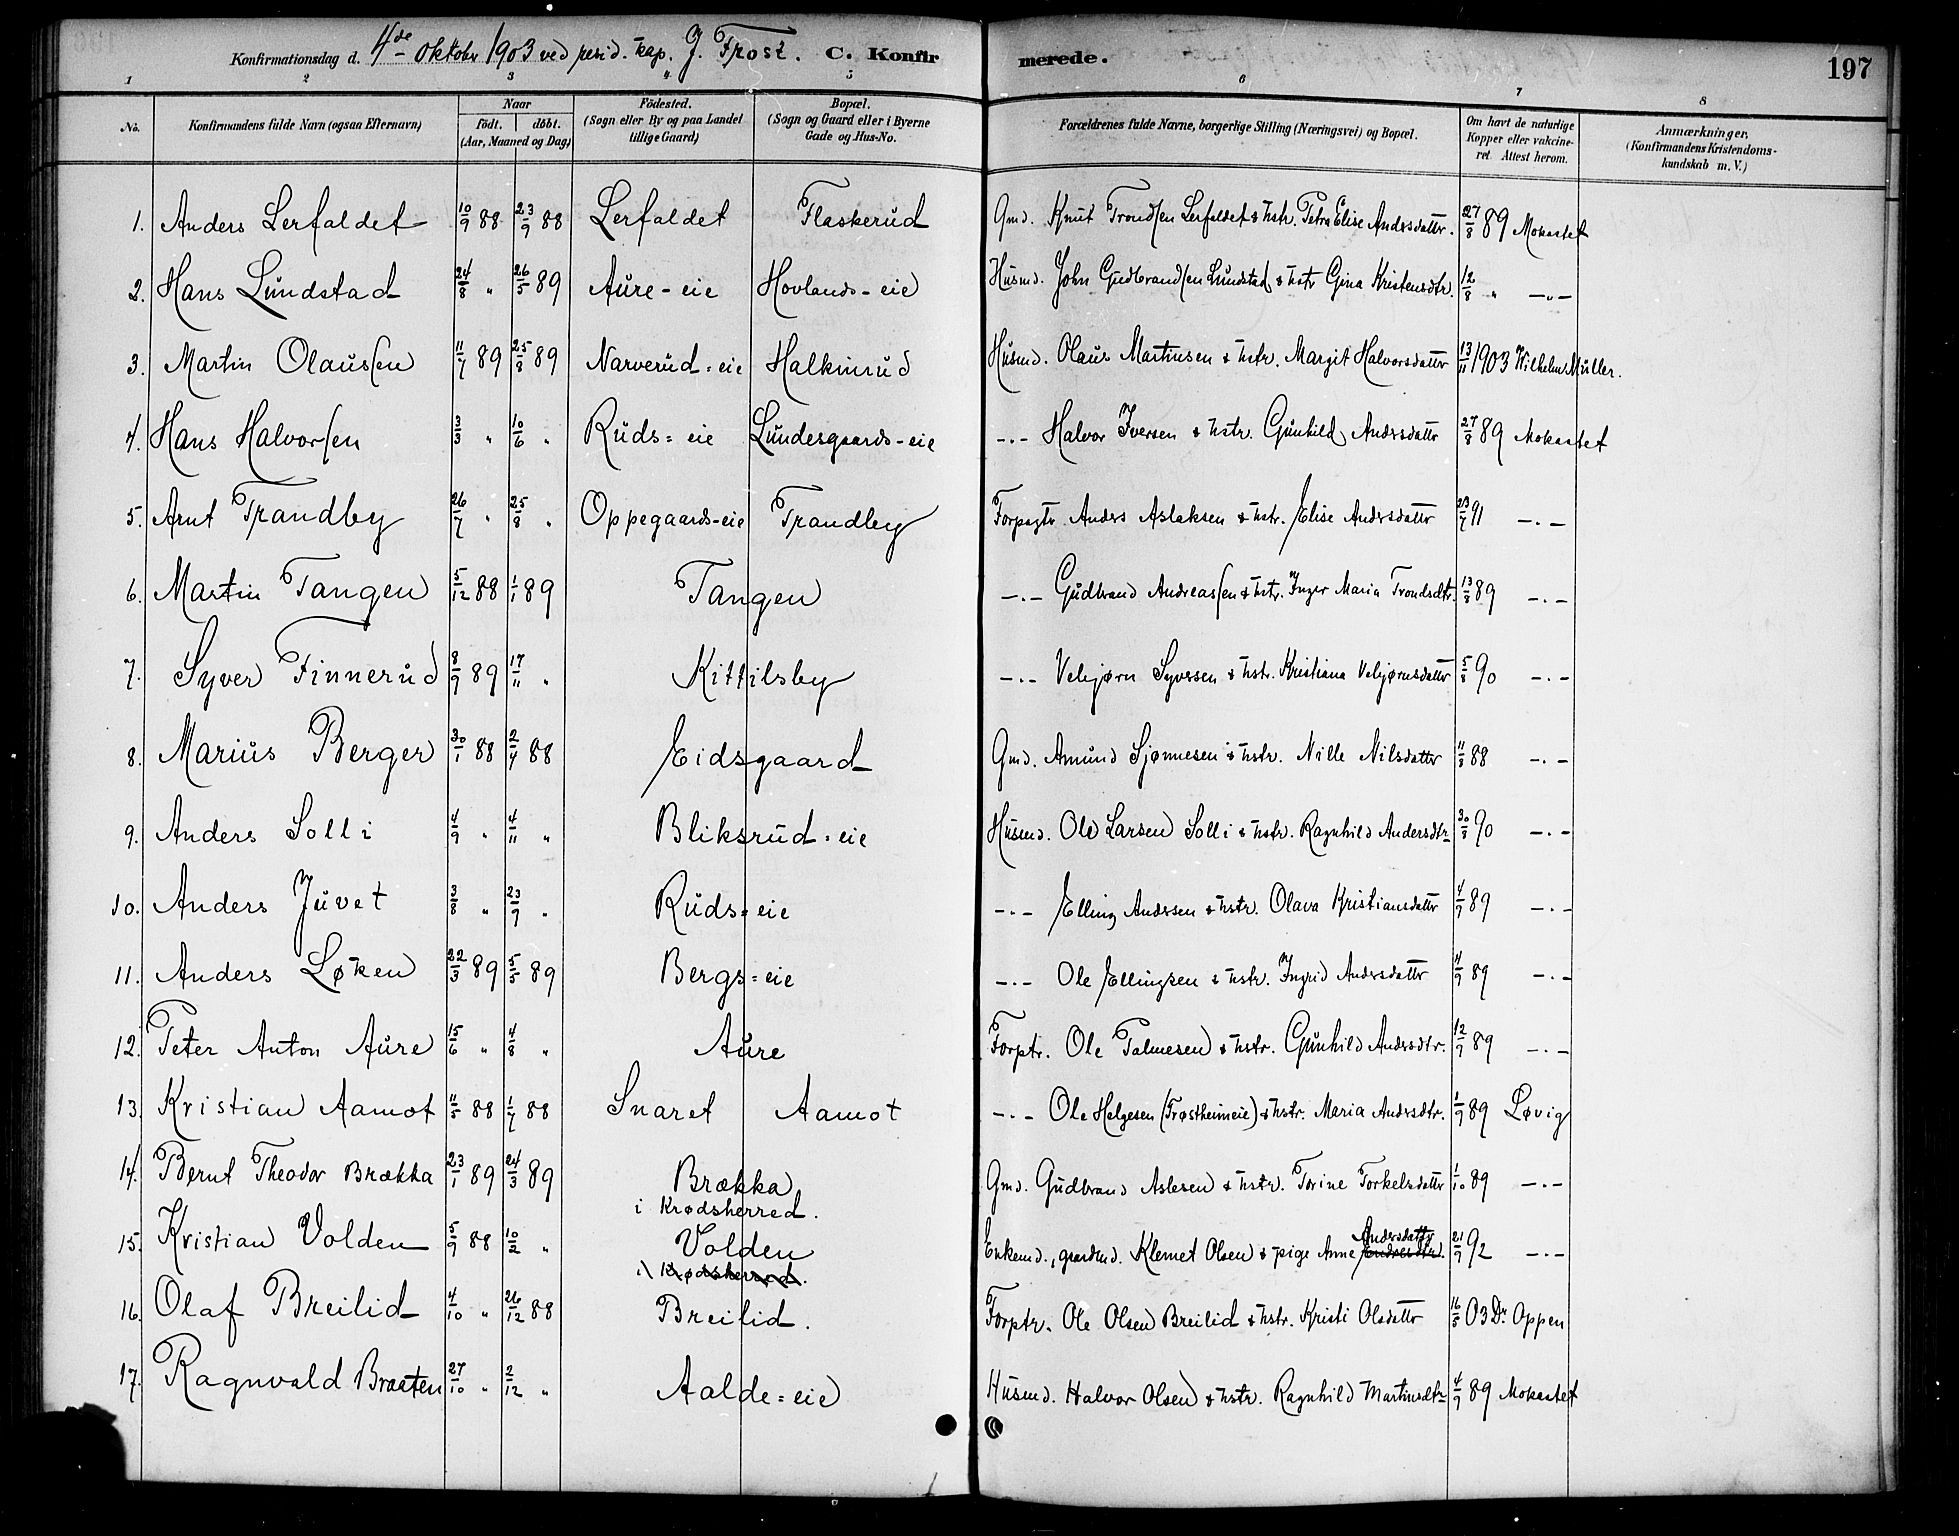 Konfirmationsdag d. 4de Oktober 1903 ved resid. kap. J. Frost. C. Konfirmerede. 197
1 2 3 " 5 6 7 8
No. Konfirmandens fulde Navn (ogsaa Efternavn) Naar født. døbt. (Aar, Maaned og Dag) Födested. (Sogn eller By og paa Landet tillige Gaard) Bopæl. (Sogn og Gaard eller i Byerne Gade og Hus-No. Forældrenes fulde Navne, borgerlige Stilling (Næringsvei) og Bopæl. Om havt de naturlige Kopper eller vakcineret Attest herom. Anmærkninger. (Konfirmandens Kristendomskundskab m. V.)
1. Anders Lerfaldet 10/9 88 23/9 88 Lerfaldet Flaskerud Gmd. Knut Trondsen Lerfaldet & hstr. Petra Elise Andersdattr. 27/8 89 Mokastet
2. Hans Lundstad 24/8 " 26/5 89 Aure-eie Hovlands-eie Husmd. John Gudbrandsen Lundstad & hstr Gina Kristensdtr. 12/8 " -"-
3. Martin Olaussen 11/7 89 25/8 89 Narverud=eie Halkinrud Husmd. Olaus Martinsen & hstr. Margit Halvorsdattr 13/11 1903 Wilhelm Müller.
4. Hans Halvorsen 3/3 " 10/6 " Ruds=eie Lundesgaards-eie -"- Halvor Iversen & hstr. Gunhild Andersdattr 27/8 89 Mokastet
5. Arnt Trandby 26/7 " 25/8 " Oppegaards-eie Trandby Forpagtr. Anders Aslaksen & hstr. Elise Andersdattr 23/7 91 -"-
6. Martin Tangen 5/12 88 1/1 89 Tangen -"- Gudbrand Andreassen & hstr. Inger Maria Trondsdtr. 13/8 89 -"-
7. Syver Finnerud 8/9 89 17/11 " Kittilsby -"- Vebjørn Syversen & hstr. Kristiana Vebjørnsdattr 5/8 90 -"-
8. Marius Berger 30/1 88 2/4 88 Eidsgaard Gmd. Amund Sjønnesen & hstr. Nille Nilsdattr 11/8 88 -"-
9. Anders Solli 4/9 " 4/11 " Bliksrud=eie Husmd. Ole Larsen Solli & hstr. Ragnhild Andersdtr 30/8 90 -"-
10. Anders Juvet 3/8 " 23/9 " Ruds=eie -"- Elling Andersen & hstr. Olava Kristiansdattr 4/9 89 -"-
11. Anders Løken 22/3 89 5/5 89 Bergs=eie -"- Ole Ellingsen & hstr. Ingrid Andersdattr 4/9 89 -"-
12. Peter Anton Aure 15/6 " 4/8 " Aure Forptr. Ole Palmesen & hstr. Gunhild Andersdtr. 12/9 89 -"-
13. Kristian Aamot 11/5 88 1/7 88 Snaret Aamot -"- Ole Helgesen (Frøstheimeie) & hstr. Maria Andersdtr. 1/9 89 Løvig
14. Bernt Theodor Brækka 23/1 89 24/3 89 Brækka Gmd. Gudbrand Aslesen & hstr. Torine Torkelsdattr 1/10 89 -"-
i Krødsherred.
15. Kristian Volden 5/9 88 10/2 " Volden Enkemd., gaardmd. Klemet Olsen & pige Anne Andersdattr 21/9 92 -"-
i Krødsherred.
16. Olaf Breilid 4/10 " 26/12 88 Breilid. Forptr. Ole Olsen Breilid & hstr. Kristi Olsdattr 16/5 03 Dr. Oppen
17. Ragnvald Braaten 27/10 " 2/12 " Aalde=eie Husmd. Halvor Olsen & hstr. Ragnhild Martinsdtr 4/9 89 Mokastet